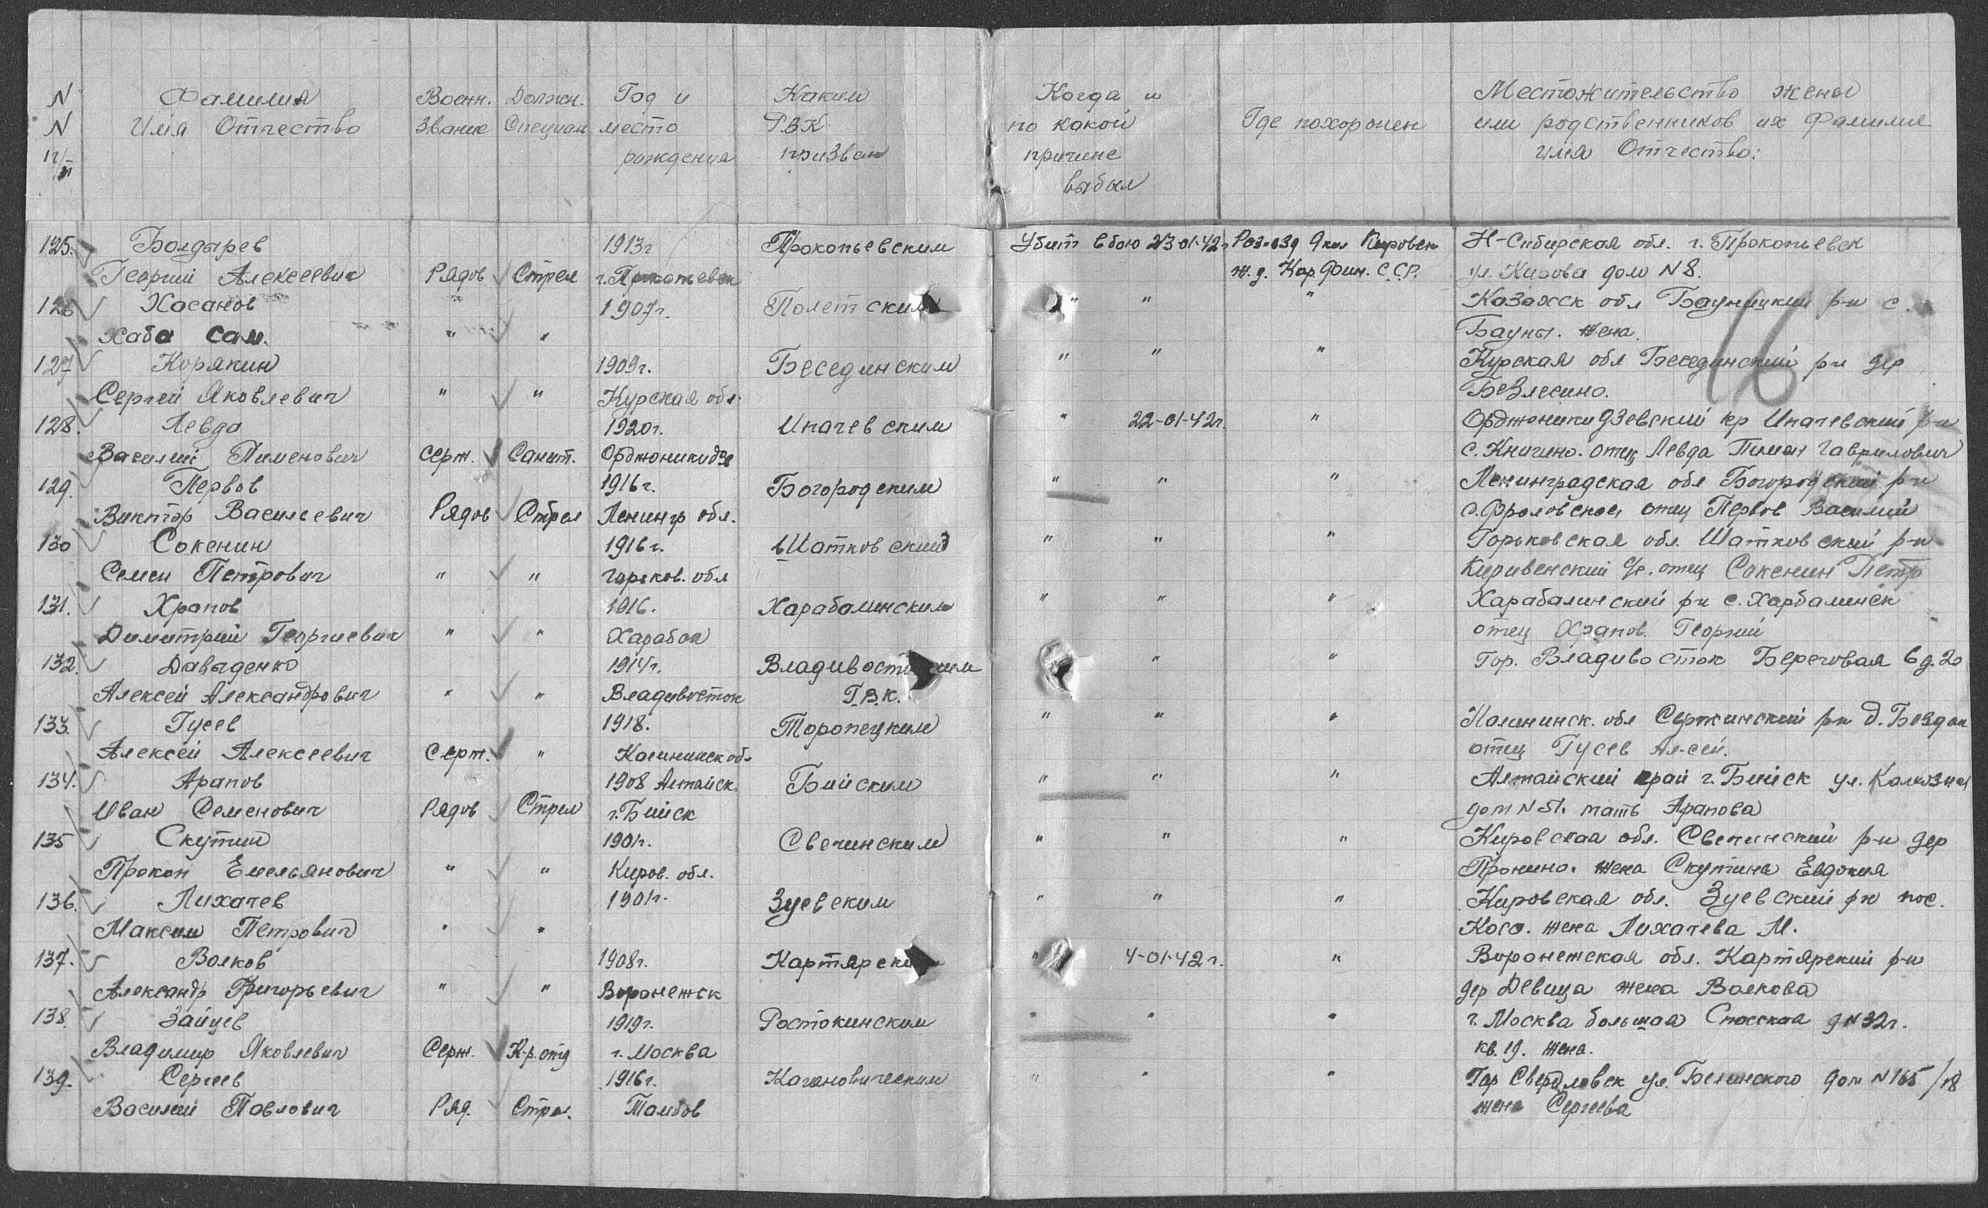 N Фамилия Воен. Должн. Год и Каким Когда и Местожительство жены
N Имя Отчество Звание Специал место РВК по какой Где похоронен или родственников их Фамилия
п/п рождения призван причине имя Отчество:
выбыл
125. Болдырев 1913г Прокопьевским Убит в бою 23-01-42г Раз-озд 9 км Кировск Н-Сибирская обл. г. Прокопьевск
Георгий Алексеевич Рядов Стрел г. Прокопьевск ж.д. Кар. Фин. С.С.Р. ул. Кирова дом N 8.
126 Хасанов 1907г. Полетским " " " Казахск обл Бауницкий р-н с.
Хаба Сам. " " Бауны. жена
127 Корякин 1909г. Беседннским " " " Курская обл Бесединский р-н дер
Сергей Яковлевич " " Курская обл. Безлесино.
128. Левда 1920г. Ипачевским " 22-01-42г. " Орджоникидзевский кр Ипатевский р-н
Василий Пименович серж. Санит. Орджоникидзе с. Книгино. отец Левда Пимен Гаврилович
129. Первов 1916г. Богородским " " " Ленинградская обл Богородский р-н
Виктор Васильевич Рядов Стрел Ленингр обл. с. Фроловское, отец Первов Василий
130 Сокенин 1916г. Шатковский " " " Горьковская обл. Шатковский р-н
Семен Петрович " " Горьков. обл отец Сокенин Петр
131. Храпов 1916. Харабалинским " " " Харабалинский р-н с. Харбалинск
Димитрий Георгиевич " " Харабал отец Храпов Георгий
132. Давыденко 1914г. Владивосто ким " " Гор. Владивосток Береговая 6 д. 20
Алексей Александрович " " Владивосток Г.В.К.
133. Гусев 1918. Торопецким " " " Калининск. обл Сережинский р-н д.
Алексей Алексеевич Серж. " Калининск об. отец Гусев Ал-сей.
134. Арапов 1908 Алтайск. Бийским " " " Алтайский край г. Бийск ул.
Иван Семенович Рядов Стрел г. Бийск дом N 51. мать Арапова
135 Скутин 1904г. Свечинским " " " Кировская обл. Свечинский р-н дер
Прокоп Емельянович " " Киров. обл. Пронино. жена Скутина Евдокия
136. Лихачев 1904г. Зуевским " " " Кировская обл. Зуевский р-н пос.
Максим Петрович " " Коса. жена Лихачева М.
137. Волков 1908г. Картярски " 4-01-42г. " Воронежская обл. Картярский р-н
Александр Григорьевич " " Воронежск дер Девица жена Волкова
138 Зайцев 1919г. Ростокинским " " " г. Москва большая Спасская д N 32г.
Владимир Яковлевич Серж. К-р. отд г. Москва кв. 19. жена.
139. Сергеев 1916г. Кагановическим " " " Гор Свердловск ул. Белинского дом N 165/18
Василий Павлович Ряд. Стрел. Тамбов жена Сергеева
16